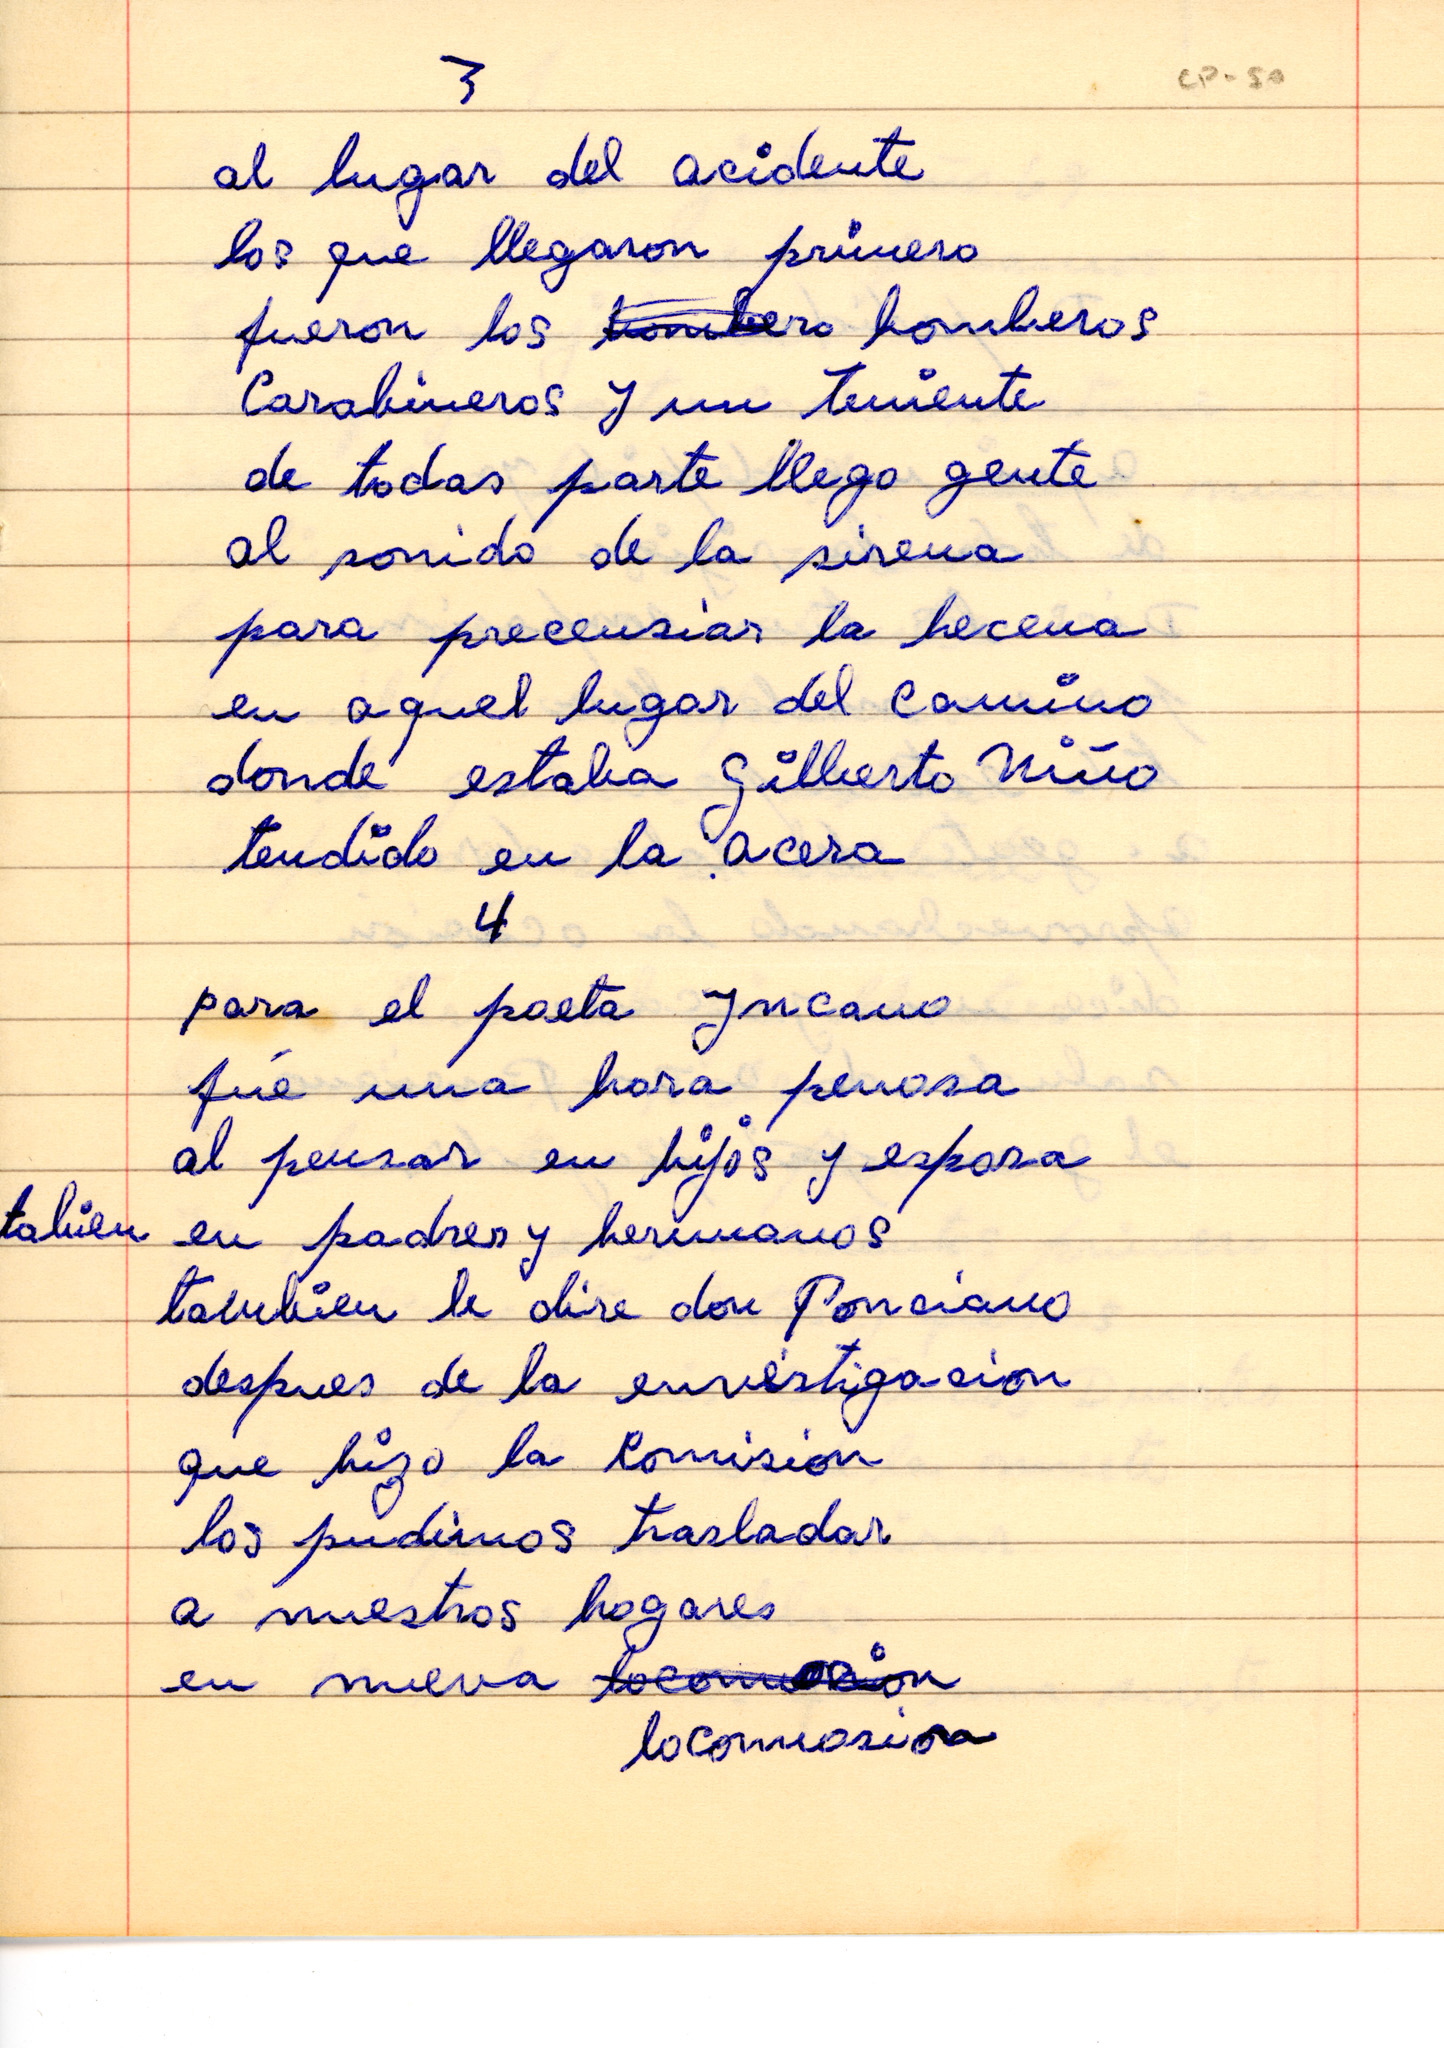 3
CP-50
al lugar del acidente
los que llegaron primero
fueron los bombero bomberos
Carabineros y un teniente
de todas parte llego gente
al sonido de la sirena
para precensiar la hecena
en aquel lugar del camino
donde estaba Gilberto Niño
tendido en la acera
4
para el poeta Yncano
fué una hora penosa
al pensar en hijos y esposa
tabien en padres y hermanos
tambien le dire don Ponciano
despues de la envestigacion
que hizo la Comision
los pudimos trasladar
a nuestros hogares
en nueva locomosion
locomosion